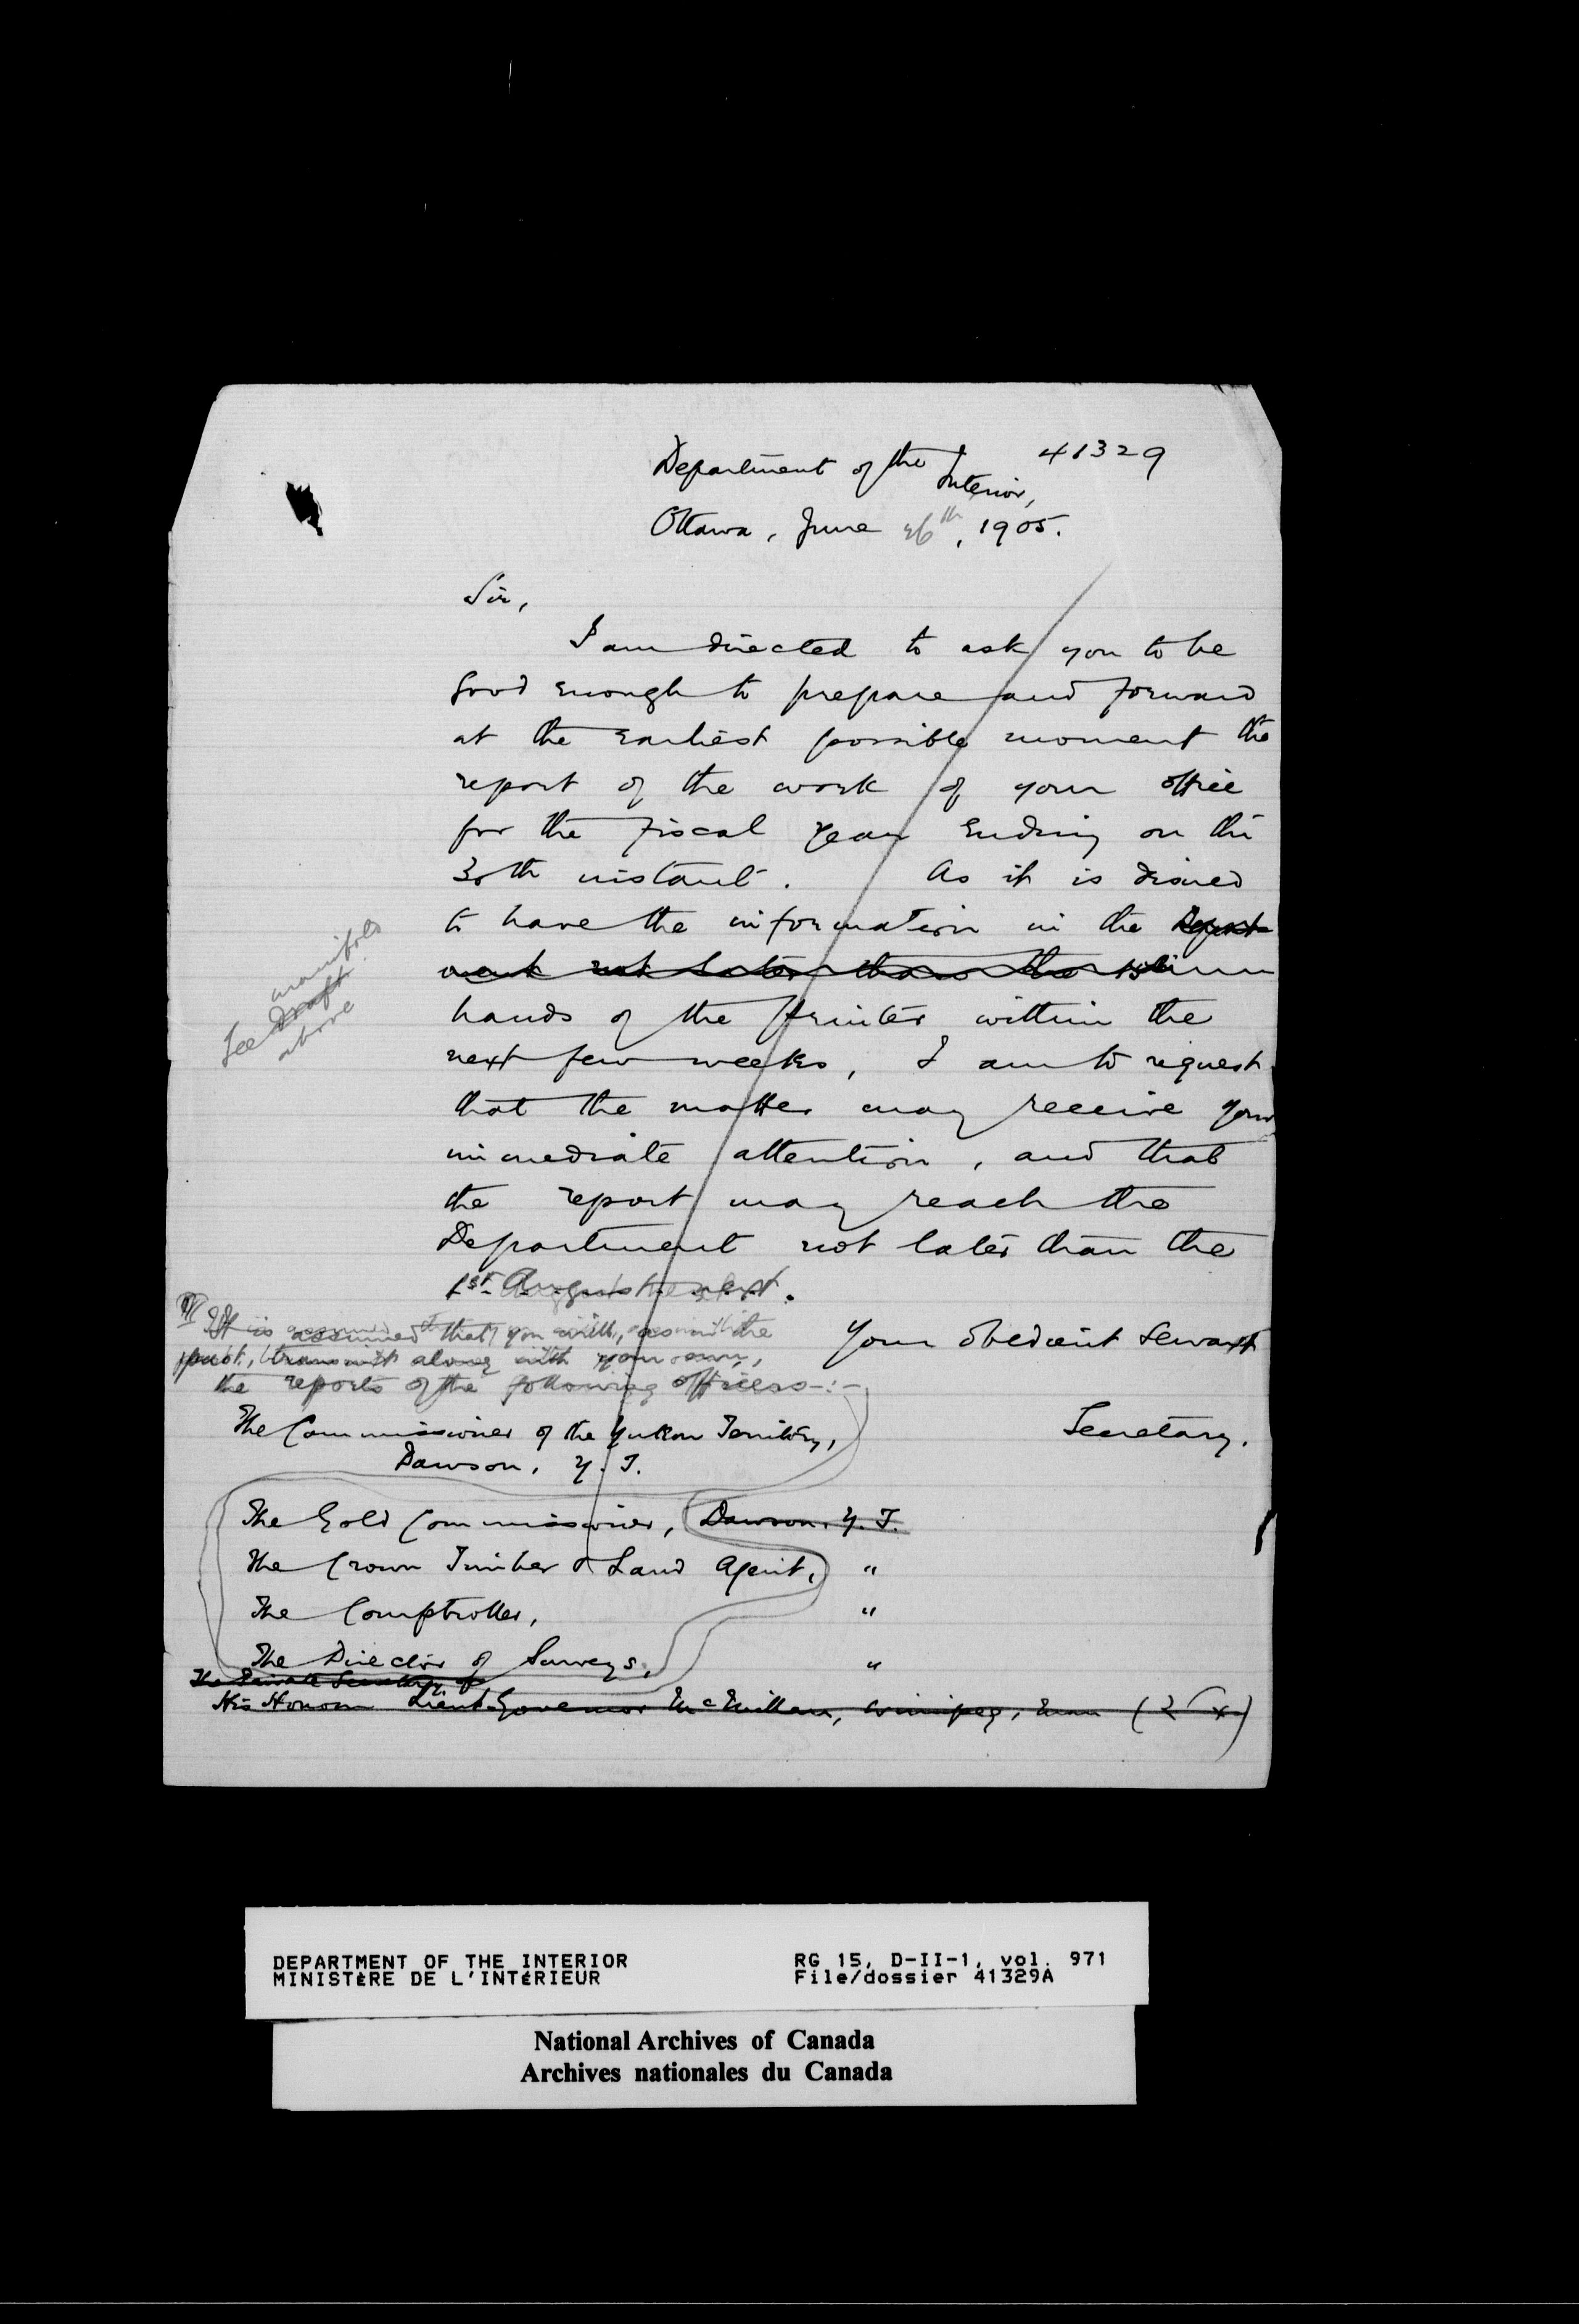 41329
Department of the
Interior,
Ottawa, June 26th, 1905.
Sir,
I am directed to ask you to be
good enough to prepare and forward
at the earliest possible moment the
report of the work of your office
for the fiscal year ending on the
30th instant. As it is desired
to have the information in the Depart-
ment not later than the 15th
hands of the Printer within the
next few weeks, I am to request
that the matter may receive your
immediate attention, and that
the report may reach the
Department not later than the
1st August next.
manifold
See draft
above
It is assumed that you will, as in the
past, transmit along with your own,
the reports of the following officers -:-
Your obedient servant
Secretary.
The Commissioner of the Yukon Territory,
Dawson, Y. T.
The Gold Commissioner, Dawson, Y. T.
The Crown Timber & Land Agent, "
The Comptroller, "
The Director of Surveys, "
The Private Secretary of
His Honour Lieut-Governor McMillan, Winnipeg, Man
DEPARTMENT OF THE INTERIOR RG 15, D-II-1, vol. 971
MINISTÈRE DE L'INTÉRIEUR File/dossier 41329A
National Archives of Canada
Archives nationales du Canada